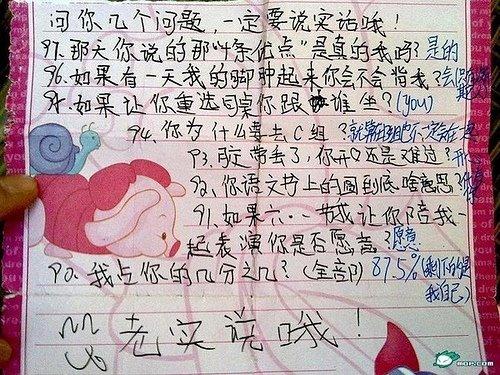 问你几个问题，一定要说实话哦！
97.那天你说的那"十条优点"是真的我吗？是的
96.如果有一天我的脚肿起来你会不会背我？会
95.如果让你重选同桌你跟谁坐？(you)
94.你为什么要去C组？
93.肯定带丢了，你开心还是难过？
92.你语文书上的画到底啥意思？
91.如果六·一节我让你陪我一
起表演你是否愿意？愿意
90.我占你的几分之几？(全部) 87.5%(剩下的是
我自己)
老实说哦！
MOP.COM